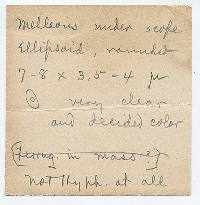 Melleous under scope
Ellipsoid, rounded
7-8 x 3.5-4 µ
@ very clear
and decided color
(Ferrug. in mass)
not hyph. at all